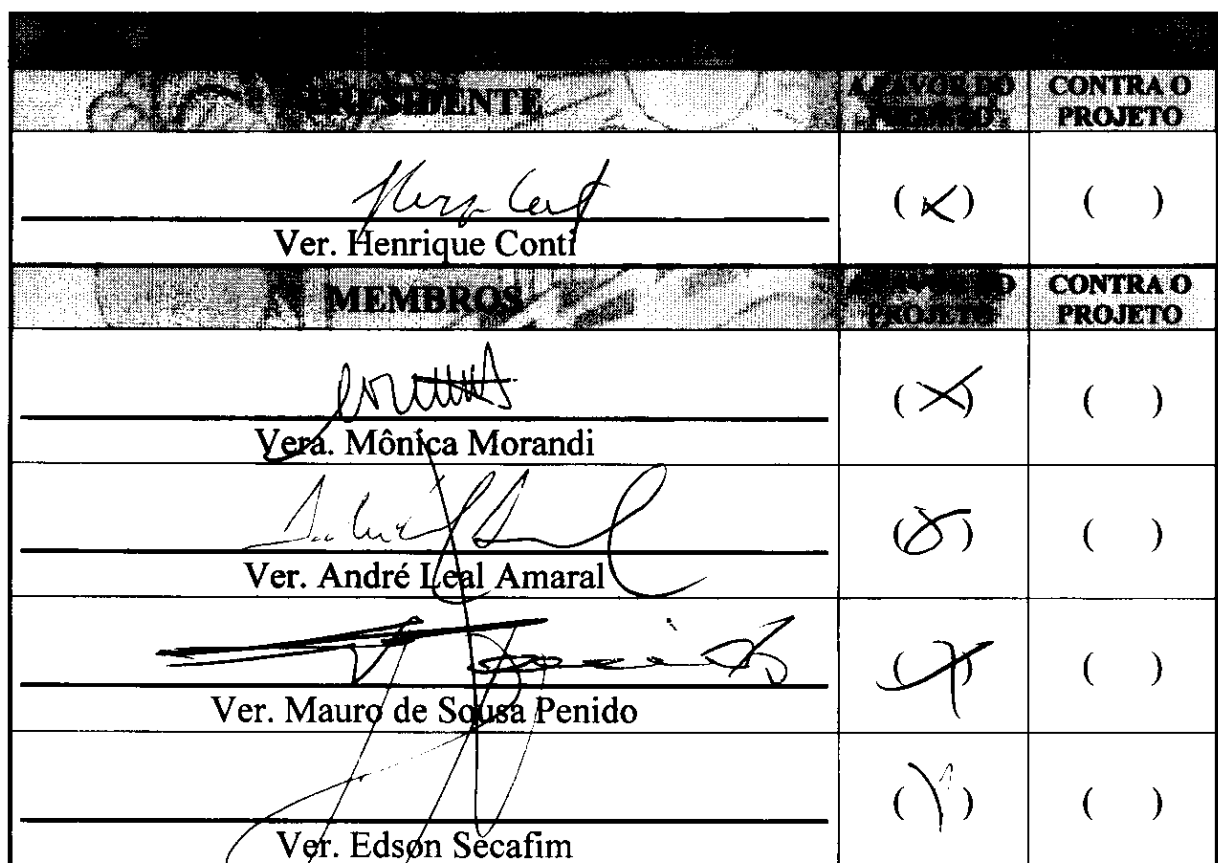 PRESIDENTE A FAVOR DO PROJETO CONTRA O PROJETO
Ver. Henrique Conti (X) ( )
MEMBROS A FAVOR DO PROJETO CONTRA O PROJETO
Vera. Mônica Morandi (X) ( )
Ver. André Leal Amaral (X) ( )
Ver. Mauro de Sousa Penido (X) ( )
Ver. Edson Secafim (X) ( )